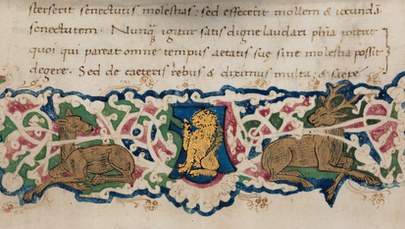 sterserit senectutis molestias: sed effecerit mollem & iocundã
senectutem. Nunq̃ igitur satis digne laudari phīa poterit
quoi qui pareat omne tempus aetatis sue sine molestia possit
degere. Sed de caeteris rebus & diximus multa: & saepe